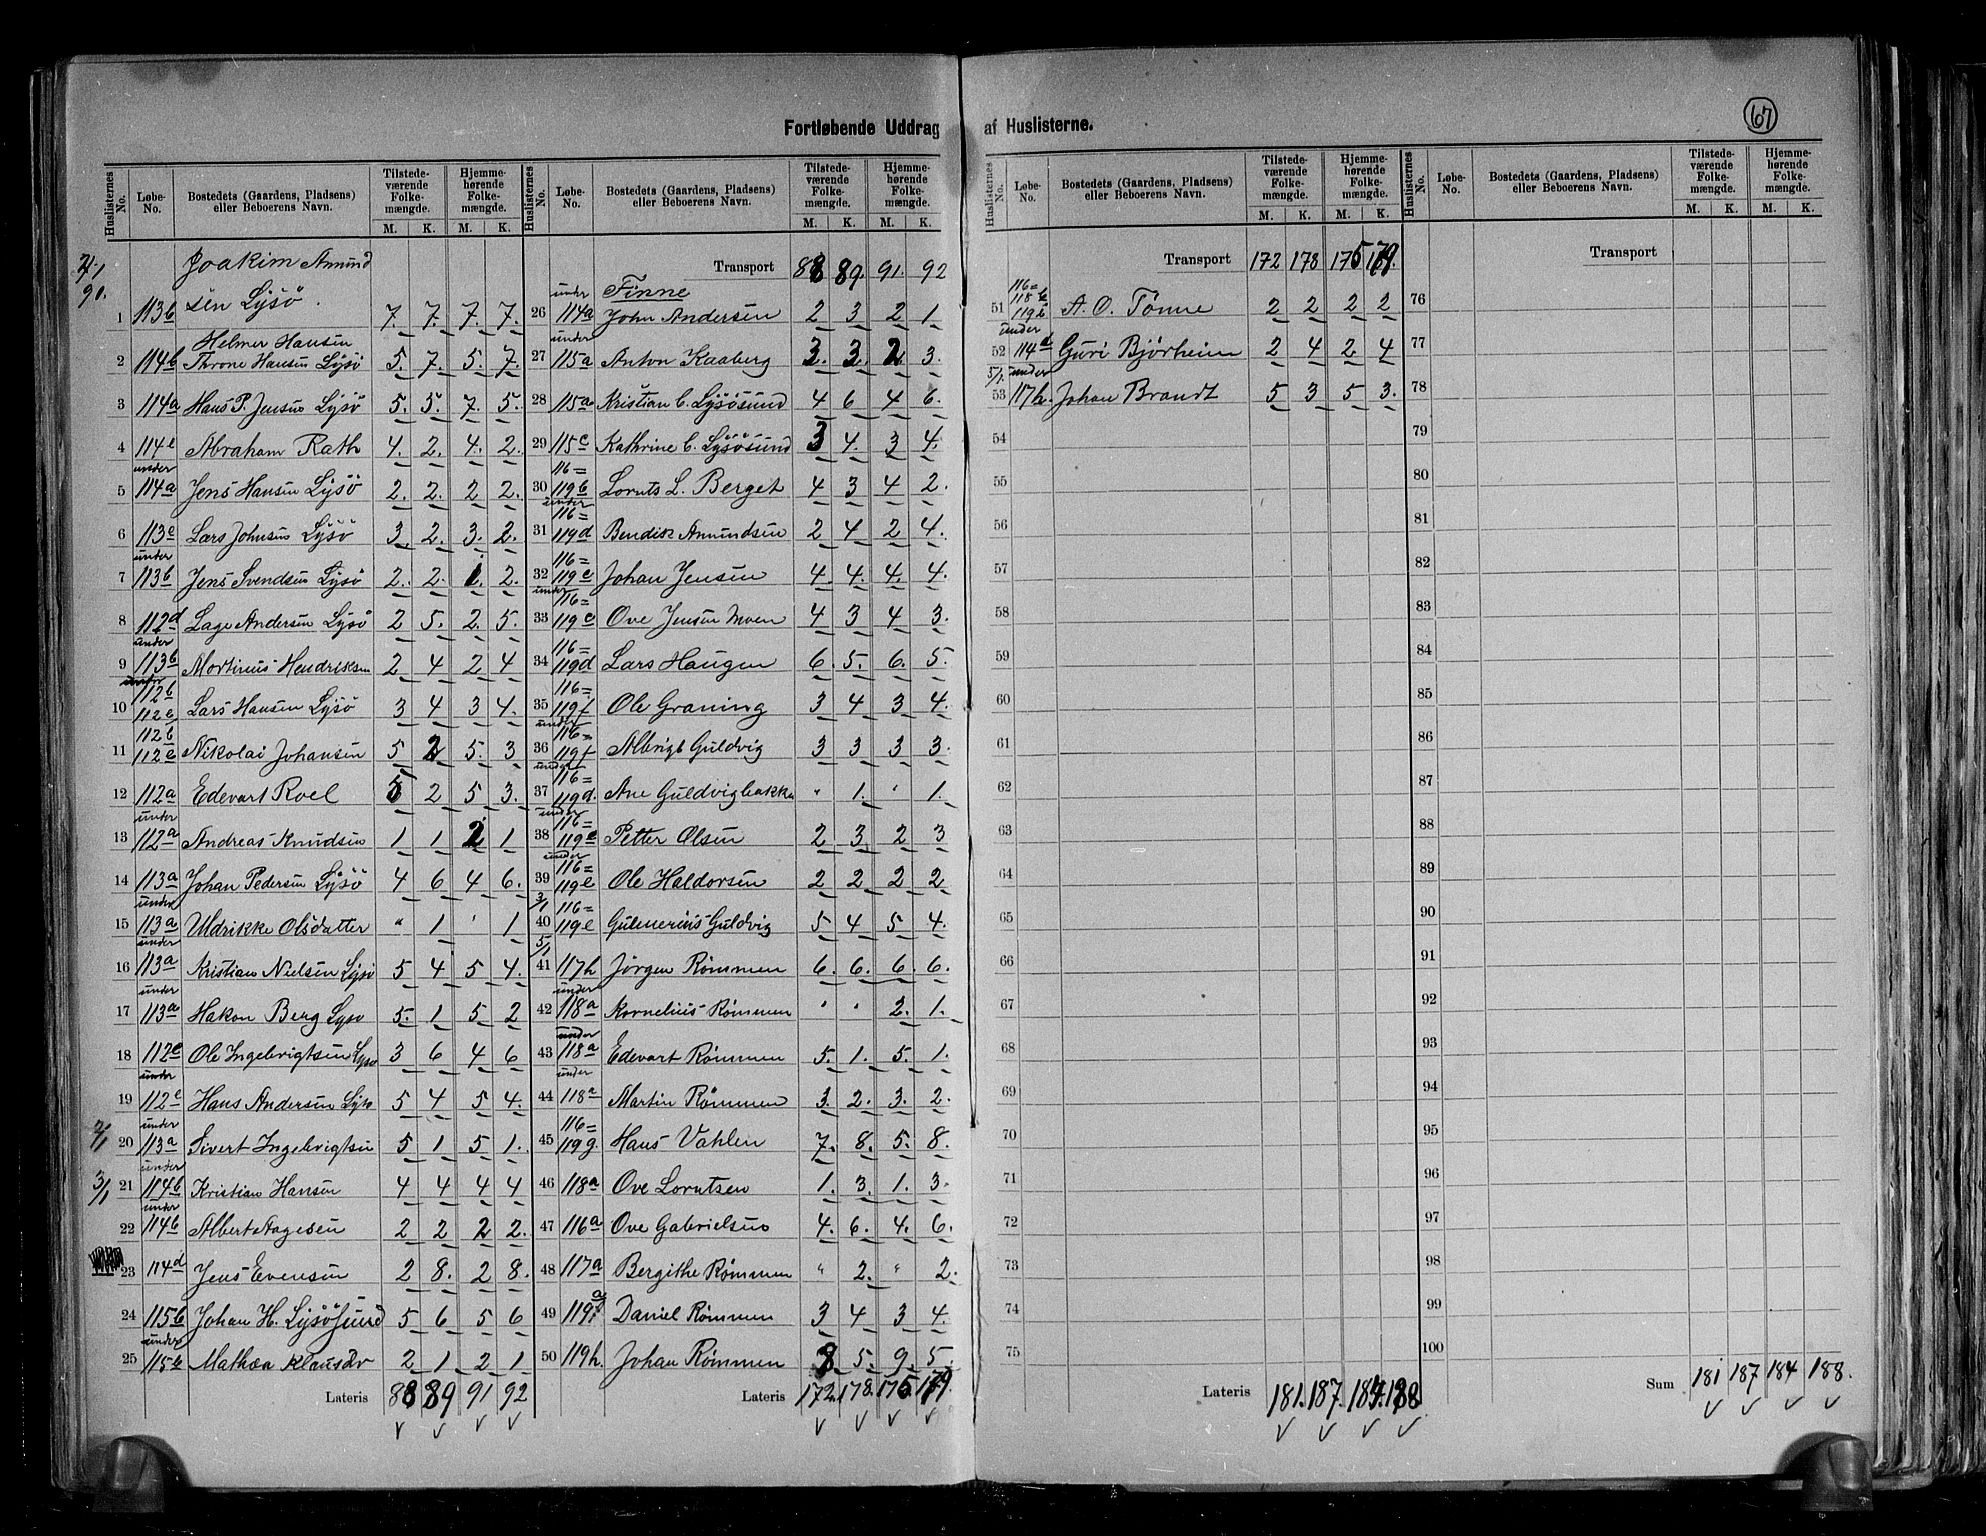 Fortløbende Uddrag af Huslisterne.
67
Huslisternes No. Løbe-No. Bostedets (Gaardens, Pladsens) eller Beboerens Navn. Tilstede-værende Folke-mængde. M. K. Hjemme-hørende Folke-mængde. M. K.
2/1 90.
Joakim Amund
1 113b sen Lysö. 7. 7. 7. 7.
Helmer Hansen
2 114b Throne Hansen Lysö 5. 7. 5. 7.
3 114a Hans P. Jensen Lysö 5. 5. 7. 5.
4 114e Abraham Rath 4. 2. 4. 2.
5 under 114a Jens Hansen Lysö 2. 2. 2 2.
6 113c Lars Johnsen Lysö 3. 2. 3. 2.
7 under 113b Jens Svendsen Lysö 2. 2. 1. 2.
8 112d Lage Andersen Lysö 2 5. 2. 5.
9 under 113b Mortinus Hendriksen 2 4 2 4
under
10 112b 112c Lars Hansen Lysö 3 4 3 4.
11 112b 112c Nikolai Johansen 5 2 5. 3
12 112a Edevart Roel 5 2 5 3.
13 under 112a Andreas Knudsen 1 1 2 1
14 113a Johan Pedersen Lysö 4 6 4 6.
15 under 113a Uldrikke Olsdatter " 1 ' 1
16 under 113a Kristian Nielsen Lysö 5 4 5 4.
17 under 113a Hakon Berg Lyso 5. 1 5 2
18 112c Ole Ingebrigtsen Lyso 3 6 4 6
19 under 112c Hans Andersen Lyso 5 4 5 4.
2/1 20 under 113a Sivert Ingebrigtsen 5 1 5 1.
3/1 21 under 114b Kristian Hansen 4 4 4 4
22 under 114b Albert Aagesen 2 2 2 2.
23 114d Jens Evensen 2 8. 2 8.
24 115b Johan H. Lysösund 5 6 5 6
25 under 115b Mathea Klausdr 2 1 2 1
Lateris 88 89 91 92
Huslisternes No. Løbe-No. Bostedets (Gaardens, Pladsens) eller Beboerens Navn. Tilstede-værende Folke-mængde. M. K. Hjemme-hørende Folke-mængde. M. K.
Transport 88 89. 91. 92
Finne
26 under 114a John Andersen 2 3 2 1.
27 under 115a Anton Kaaberg 3. 3. 2. 3.
28 115a Kristian C. Lysösund 4 6 4 6.
29 115c Kathrine C. Lysösund 3 4. 3 4.
30 116= 119b Lornts L. Berget 4 3 4 2.
31 under 116= 119d Bendik Amundsen 2 4 2 4.
32 116= 119c Johan Jensen 4. 4. 4. 4.
33 under 116= 119c Ove Jensen Moen 4 3 4 3.
34 116= 119d Lars Haugen 6. 5. 6. 5.
35 116= 119f Ole Graning 3 4 3 4.
36 under 116= 119f Albrigt Guldvig 3 3 3 3.
37 under 116= 119d. Ane Guldvigbakken " 1. ' 1.
38 under 116= 119e Petter Olsen 2 3 2 3
39 under 116= 119e Ole Haldorsen 2 2 2 2
3/1 40 116= 119e Gulnerius Guldvig 5 4 5 4.
5/1 41 117h Jörgen Römmen 6. 6. 6. 6.
42 under 118a Kornelius Römmen ' " 2. 1.
43 under 118a Edevart Römmen 5. 1. 5. 1.
44 under 118a Martin Römmen 3. 2. 3. 2.
45 116= 119g. Hans Vahlen 7. 8. 5. 8.
46 118a Ove Lorntsen 1. 3. 1. 3.
47 116a Ove Gabrielsen 4. 6. 4. 6.
48 117a Bergithe Römmen " 2. " 2.
49 119 Daniel Römmen 3 4 3 4.
50 119h. Johan Römmen 8 5. 9. 5
Lateris 172. 178. 175 179.
Huslisternes No. Løbe-No. Bostedets (Gaardens, Pladsens) eller Beboerens Navn. Tilstede-værende Folke-mængde. M. K. Hjemme-hørende Folke-mængde. M. K.
Transport 172 178 175 179.
51 116= 118b 119i A. O. Tönne 2 2 2 2
52 under 114d Guri Bjørheim 2 4 2 4
5/1 53 under 117h. Johan Brandt 5 3 5 3.
54
55
56
57
58
59
60
61
62
63
64
65
66
67
68
69
70
71
72
73
74
75
Lateris 181. 187. 184. 188
Huslisternes No. Løbe-No. Bostedets (Gaardens, Pladsens) eller Beboerens Navn. Tilstede-værende Folke-mængde. M. K. Hjemme-hørende Folke-mængde. M. K.
Transport
76
77
78
79
80
81
82
83
84
85
86
87
88
89
90
91
92
93
94
95
96
97
98
99
100
Sum 181 187 184 188.